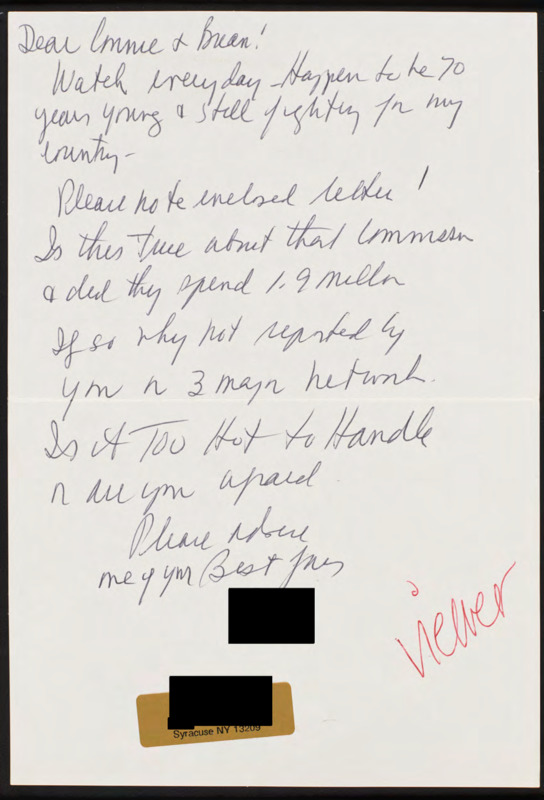 Dear Connie & Brian!
Watch everyday - Happen to be 70
years young & still fighting for my
country -
Please note enclosed letter!
Is this True about that Commission
& did they spend 1.9 million
If so why not reported by
you or 3 major network.
Is it Too Hot to Handle
or are you afraid.
Please advise
me of your Best
viewer
Syracuse NY 13209